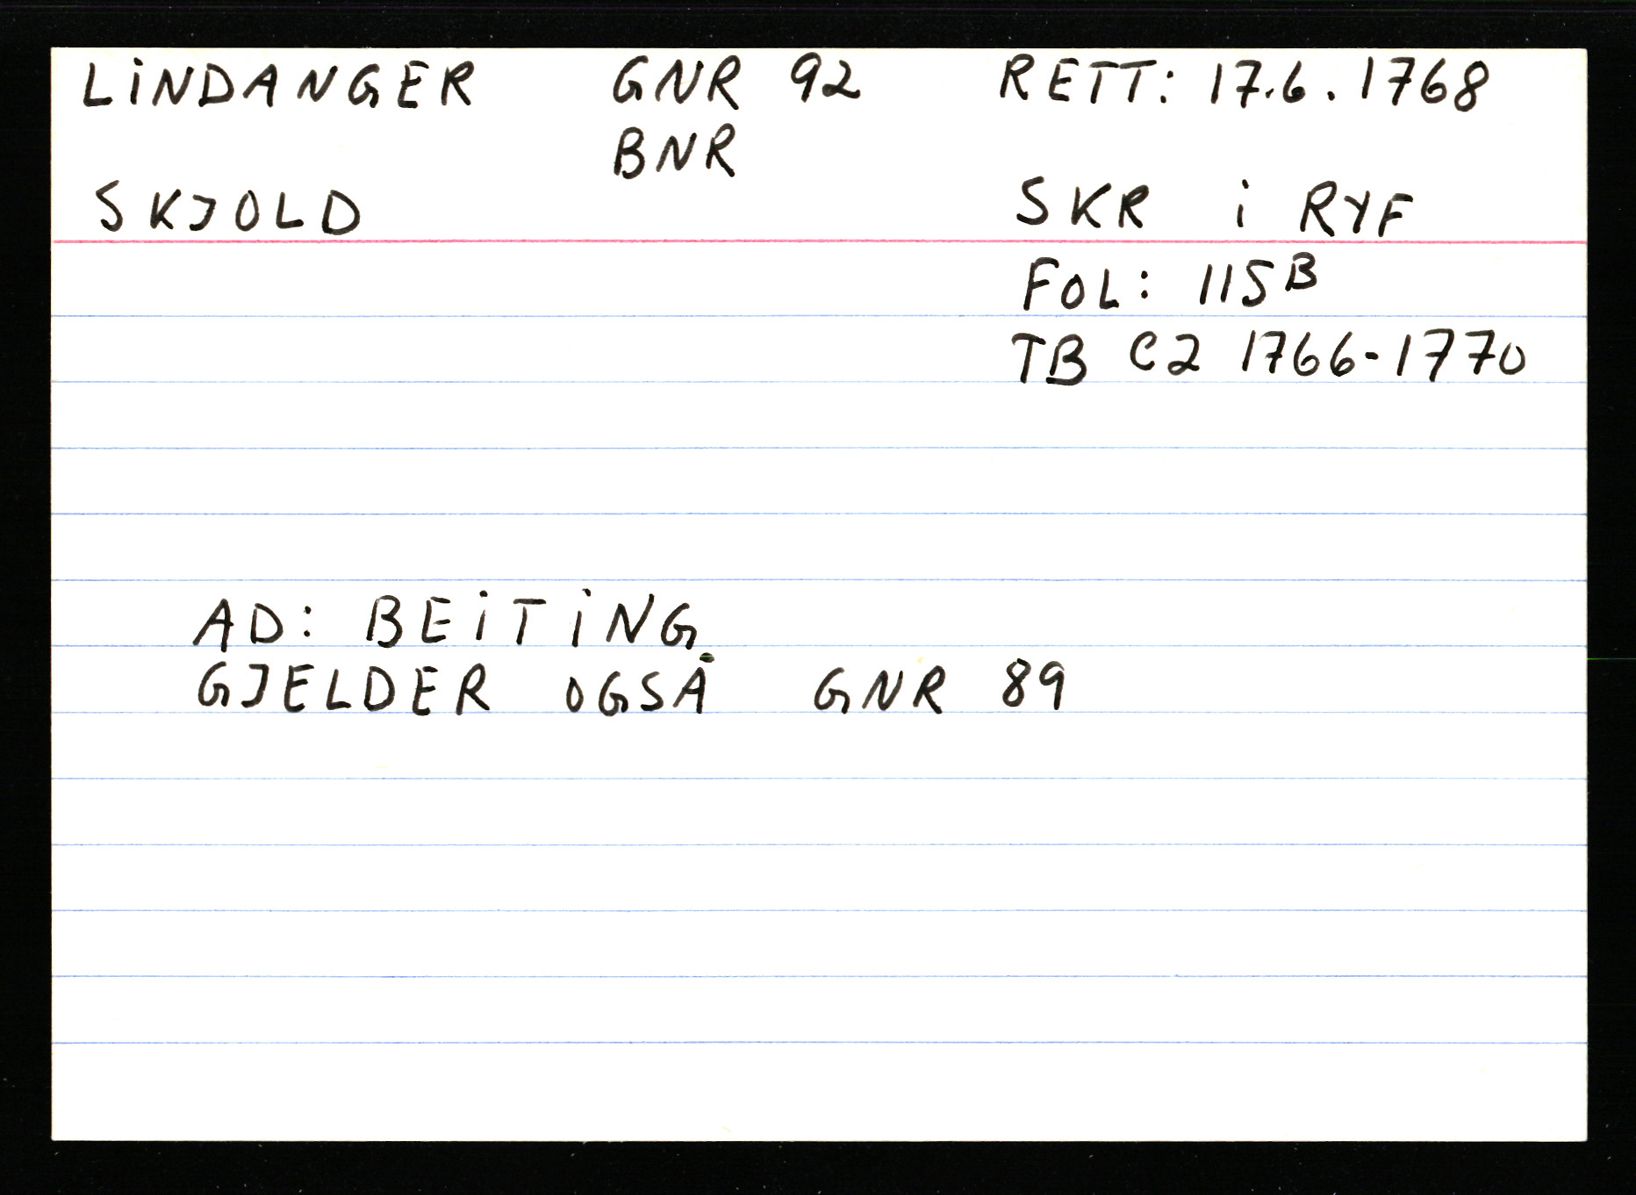 LiNDANGER GNR 92 RETT: 17.6.1768
BNR
SKJOLD SKR i RYF
FOL: 115B
TB C2 1766-1770
AD: BEiTiNG
GJELDER OGSÅ GNR 89